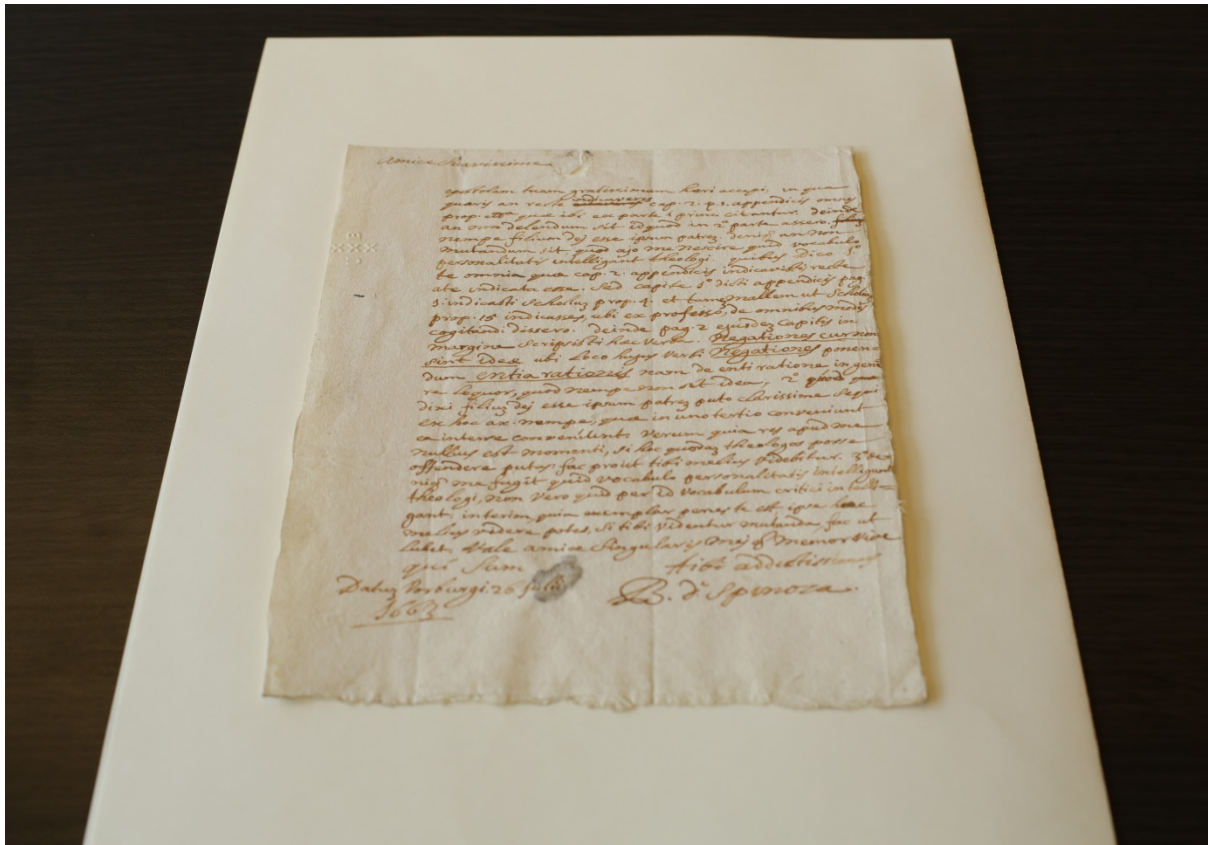 Amice Suavissime
epistolam tuam gratissimam heri accepi, in qua
quæris an recte indicaveris cap. 2. p. 1. appendicis omnes
prop. etc. quæ ibi ex parte 1 princ. citantur. deinde
an non delendum sit id quod in 2 parte assero,
nempe filium dej esse ipsum patrem. deniq an non
mutandum sit quod ajo me nescire quid vocabulo
personalitatis intelligant theologi. quibus Dico 1o
te omnia quæ cap. 2. appendicis indicavisti recte
indicata esse. Sed capite 1o dicti appendicis pag
1. indicasti Scholium prop. 4. et tamen mallem ut Scholium
prop. 15 indicasses, ubi ex professo, de omnibus modis
cogitandi dissero. deinde pag. 2 ejusdem capitis in
margine scripsisti hæc verba. Negationes cur non
sint ideæ ubi loco hujus verbi Negationes ponen-
dum entia rationis nam de enti rationis in gene
re loquor, quod nempe non sit idea, 2o quod
dixi filium dej esse ipsum patrem puto clarissime sequi
ex hoc ax. nempe, quæ in uno tertio conveniunt
ea inter se conveniunt. Verum quia res apud me
nullius est momenti, si hoc quosdam theologos posse
offendere putas, fac prout tibi melius videbitur. 3o de
niq me fugit quid vocabulo personalitatis intelligant
theologi, non vero quid per id vocabulum critici intelli-
gant. interim, quia exemplar penes te est ipse hæc
melius videre potes, si tibi videntur mutanda, fac ut
lubet. Vale amice Singularis mej & memor vive
qui Sum tibi addictissimus
Datum Vorburgi. 26 julii B. d. Spinoza.
1663